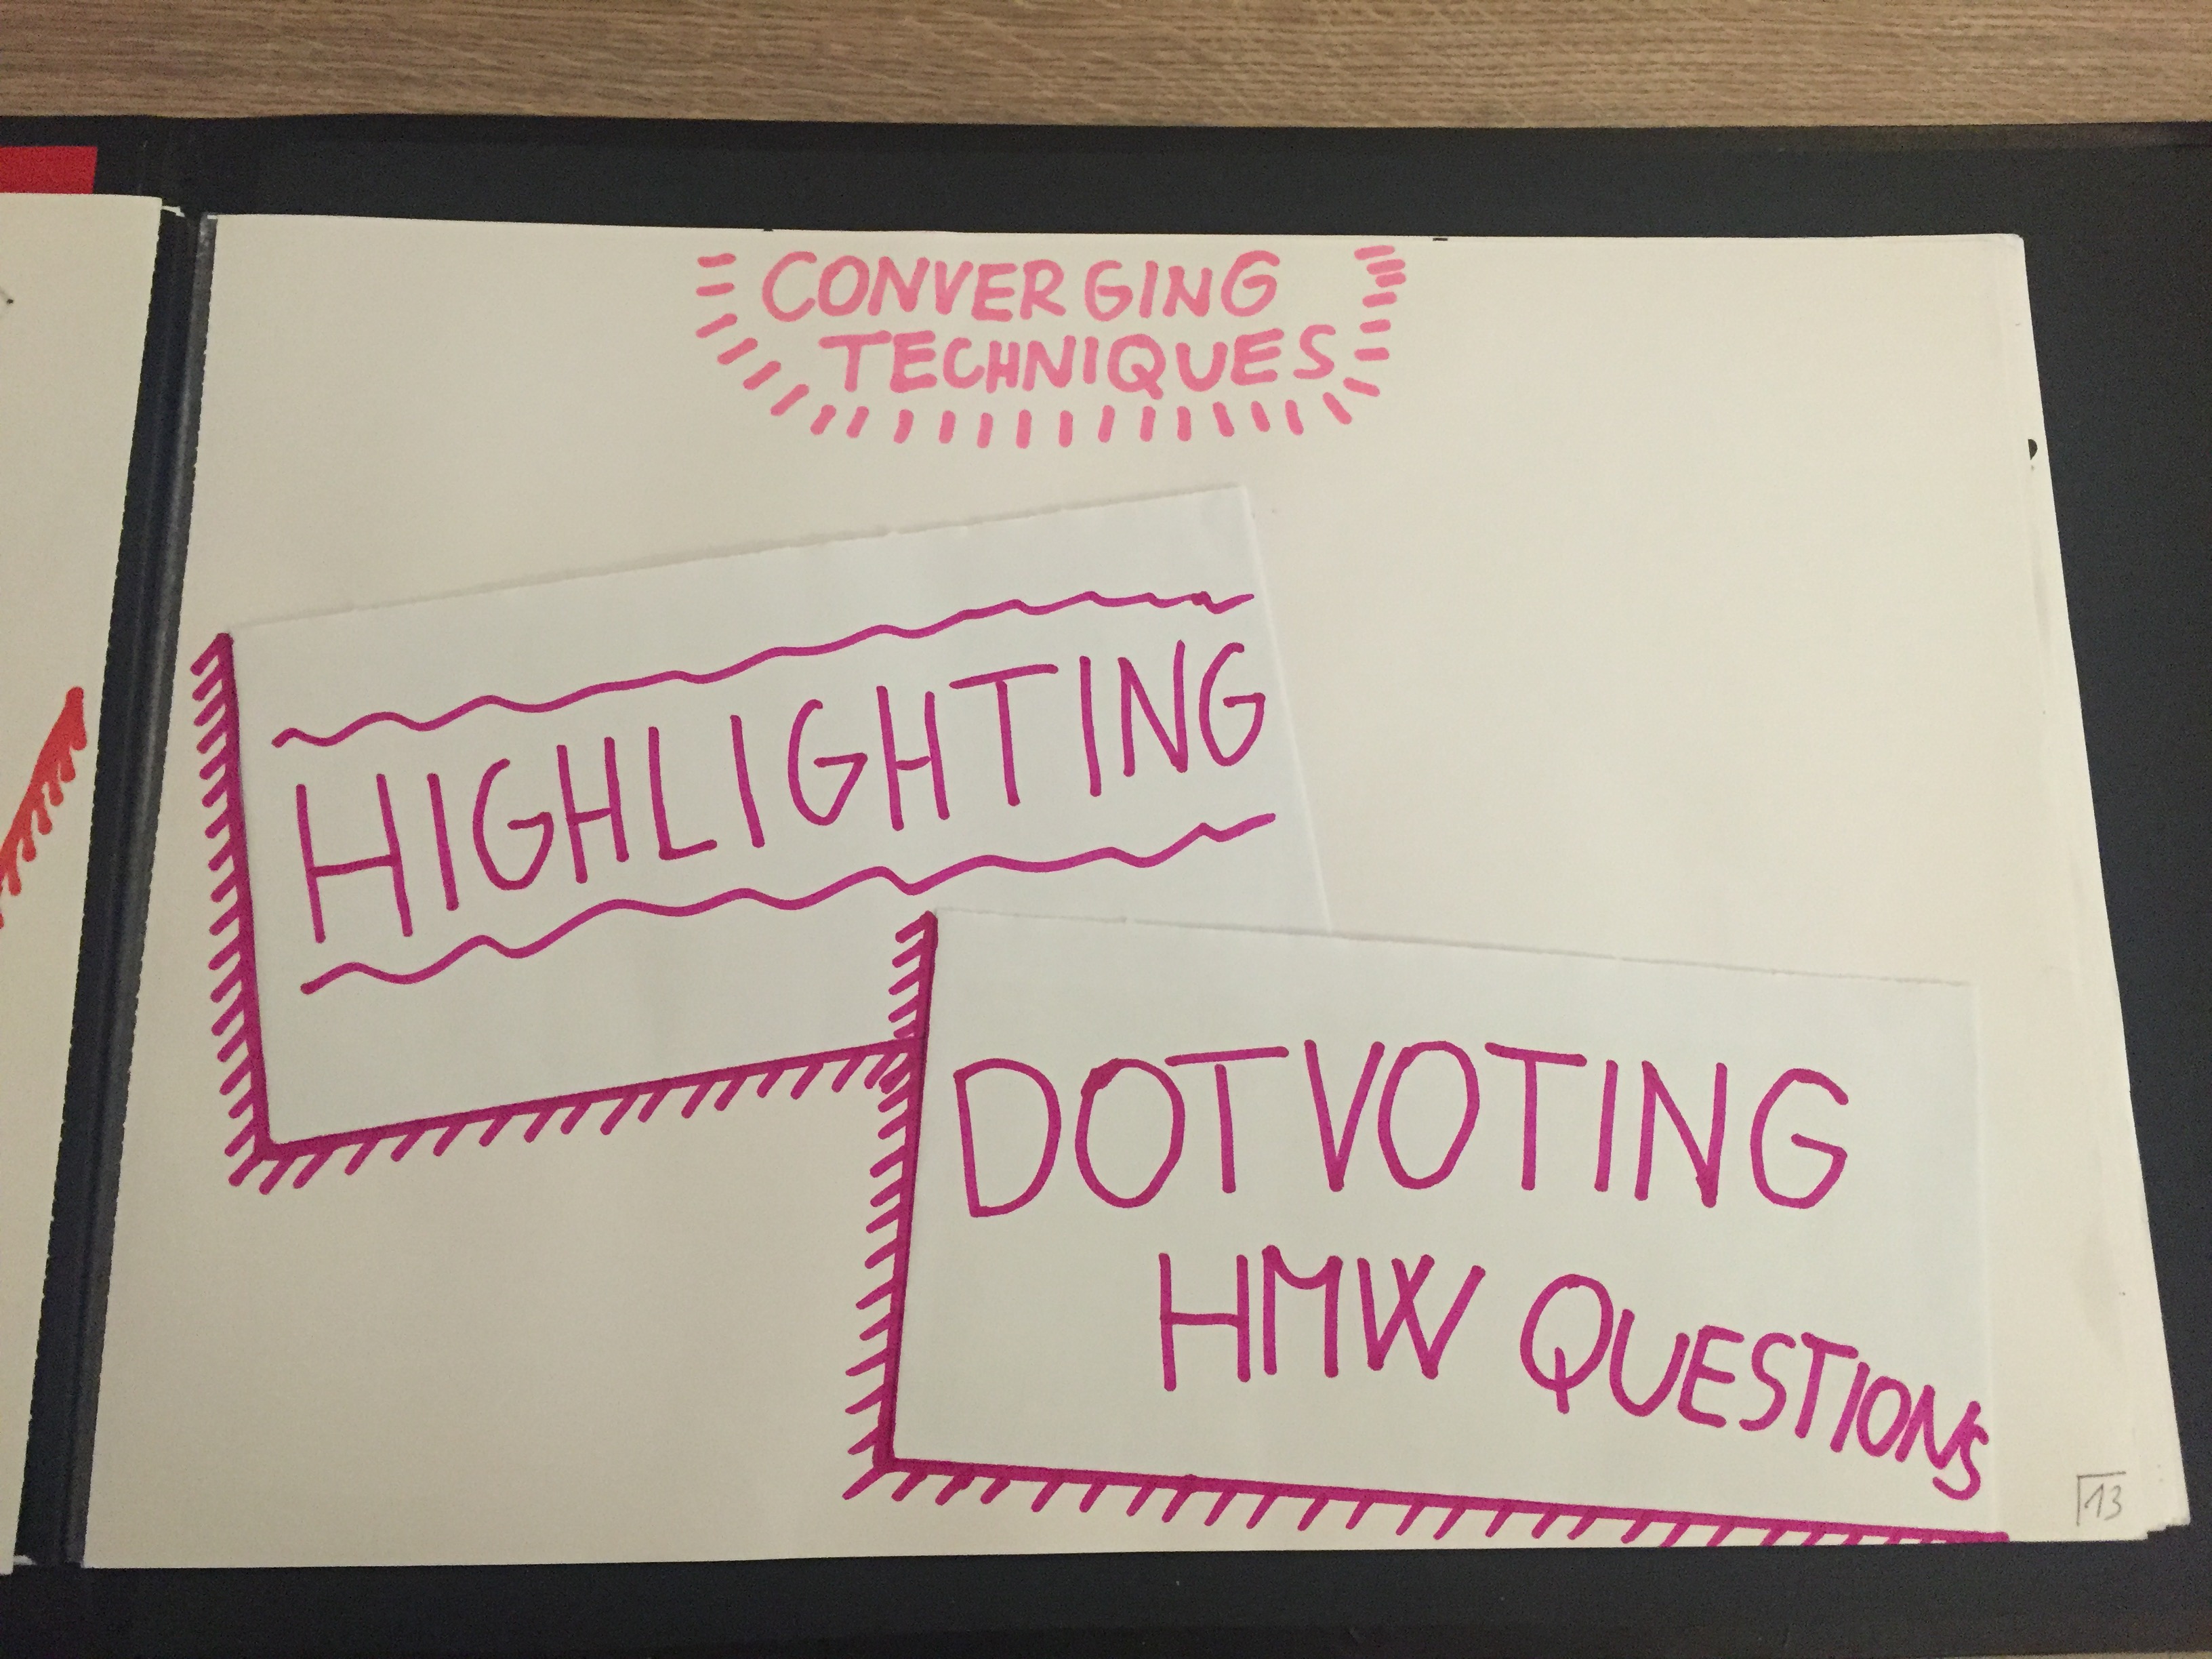 CONVERGING
TECHNIQUES
HIGHLIGHTING
DOTVOTING
HMW QUESTIONS
13